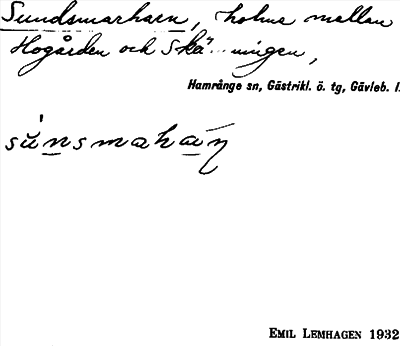 Sundsmarharen, holme mellan
Hogården och Skä...ningen,
Hamrånge sn, Gästrikl. ö. tg, Gävleb. l.
EMIL LEMHAGEN 1932